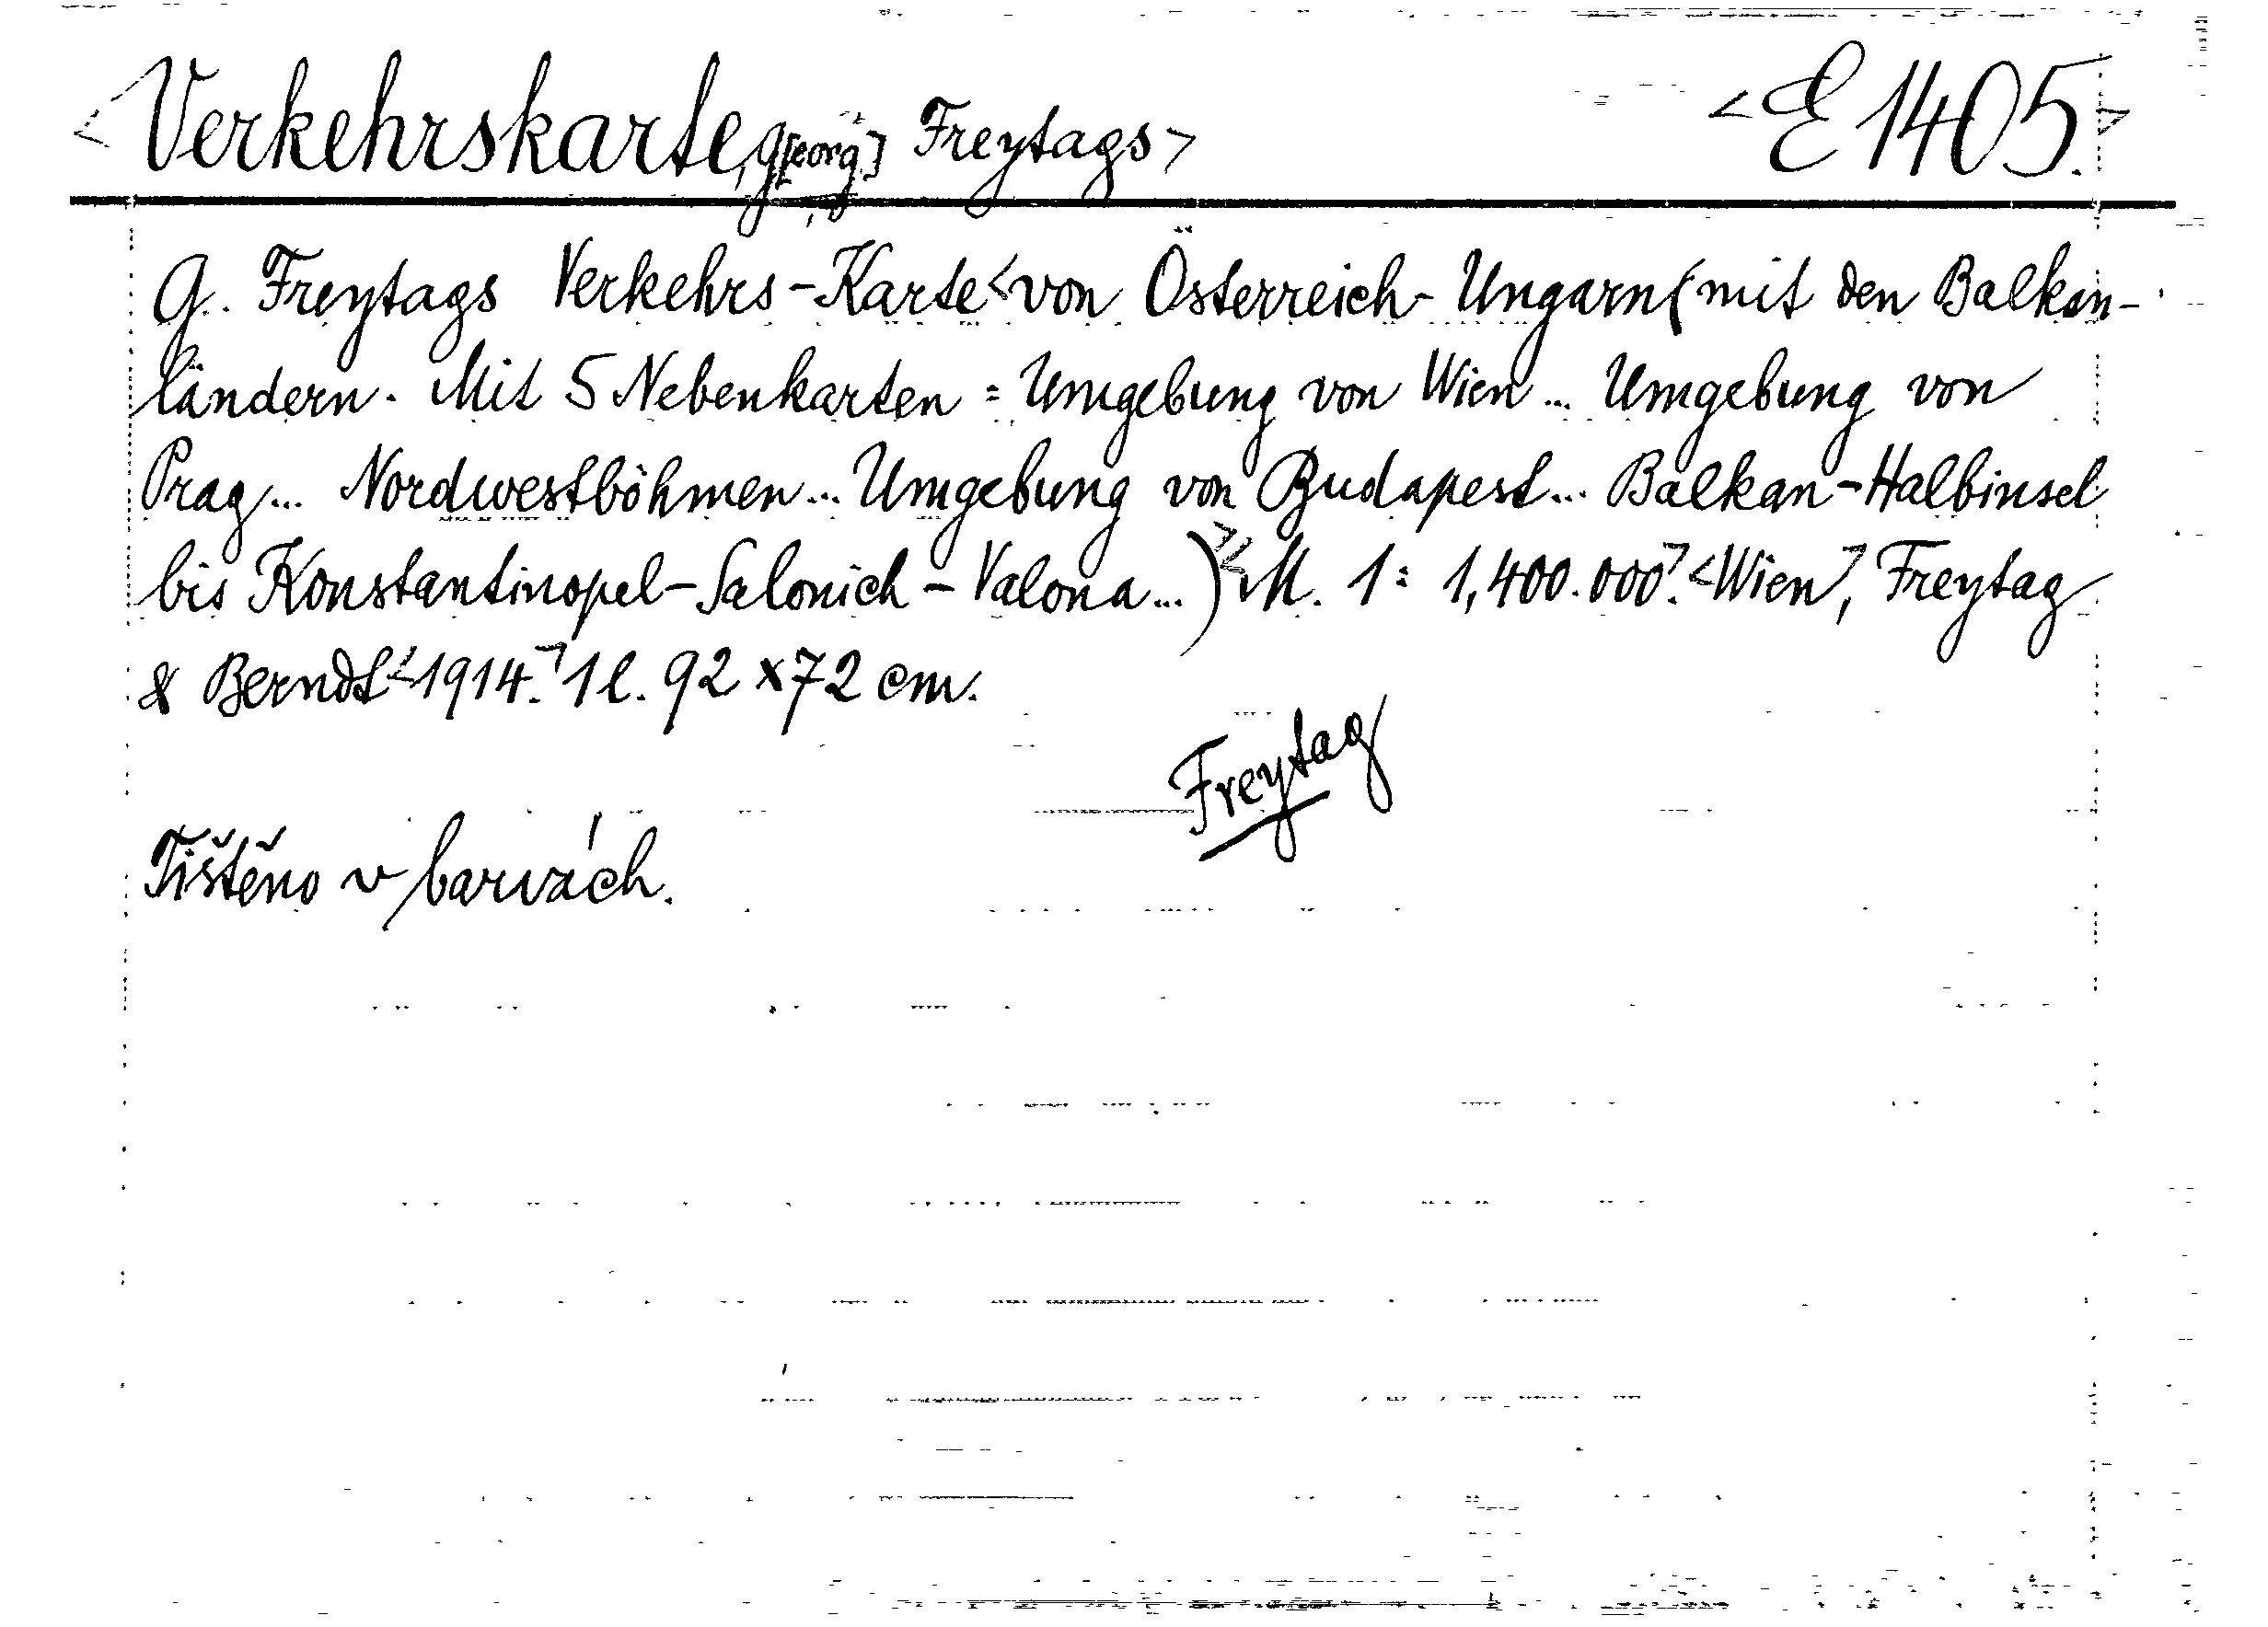 <Verkehrskarte, G[eorg] Freytags> <E 1405.>
G. Freytags Verkehrs-Karte <von Österreich-Ungarn (mit den Balkan-
ländern. Mit 5 Nebenkarten = Umgebung von Wien... Umgebung von
Prag... Nordwestböhmen... Umgebung von Budapest... Balkan-Halbinsel
bis Konstantinopel-Salonich-Valona...)> <M. 1:1,400.000>. <Wien>, Freytag
& Berndt <1914.> 1 l. 92 x 72 cm.
Freytag
Tištěno v barvách.